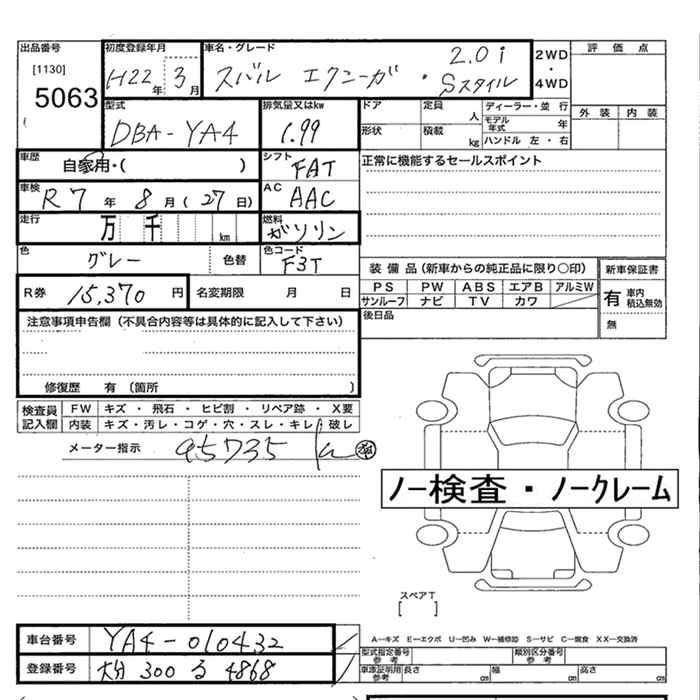 出品番号 初度登録年月 車名・グレード 2WD ・ 4WD 評価点
[1130] H22年 3月 スバル エクシーガ ・ 2.0i Sスタイル
5063
型式 排気量又はkw ドア 定員 人 ディーラー・並行 外装 内装
DBA-YA4 1.99 モデル年式 年
形状 積載 kg ハンドル 左・右
車歴 自家用・( ) シフト FAT 正常に機能するセールスポイント
車検 R7年 8月(27日) AC AAC
走行 万 千 km 燃料 ガソリン
色 グレー 色替 色コード F3T
装備品(新車からの純正品に限り〇印) 新車保証書
PS PW ABS エアB アルミW 有 車内積込無効
サンルーフ ナビ TV カワ
R券 15,370 円 名変期限 月 日
後日品 無
注意事項申告欄(不具合内容等は具体的に記入して下さい)
修復歴 有 (箇所 )
検査員記入欄 FW キズ・飛石・ヒビ割・リペア跡・X要
内装 キズ・汚レ・コゲ・穴・スレ・キレ・破レ
メーター指示 95735 km
ノー検査・ノークレーム
スペアT
[ ]
車台番号 YA4-010432
A-キズ E-エクボ U-凹み W-補修跡 S-サビ C-腐食 XX-交換済
型式指定番号 参考 類別区分番号 参考
登録番号 大分 300 る 4868
車庫証明用 参考 長さ cm 幅 cm 高さ cm